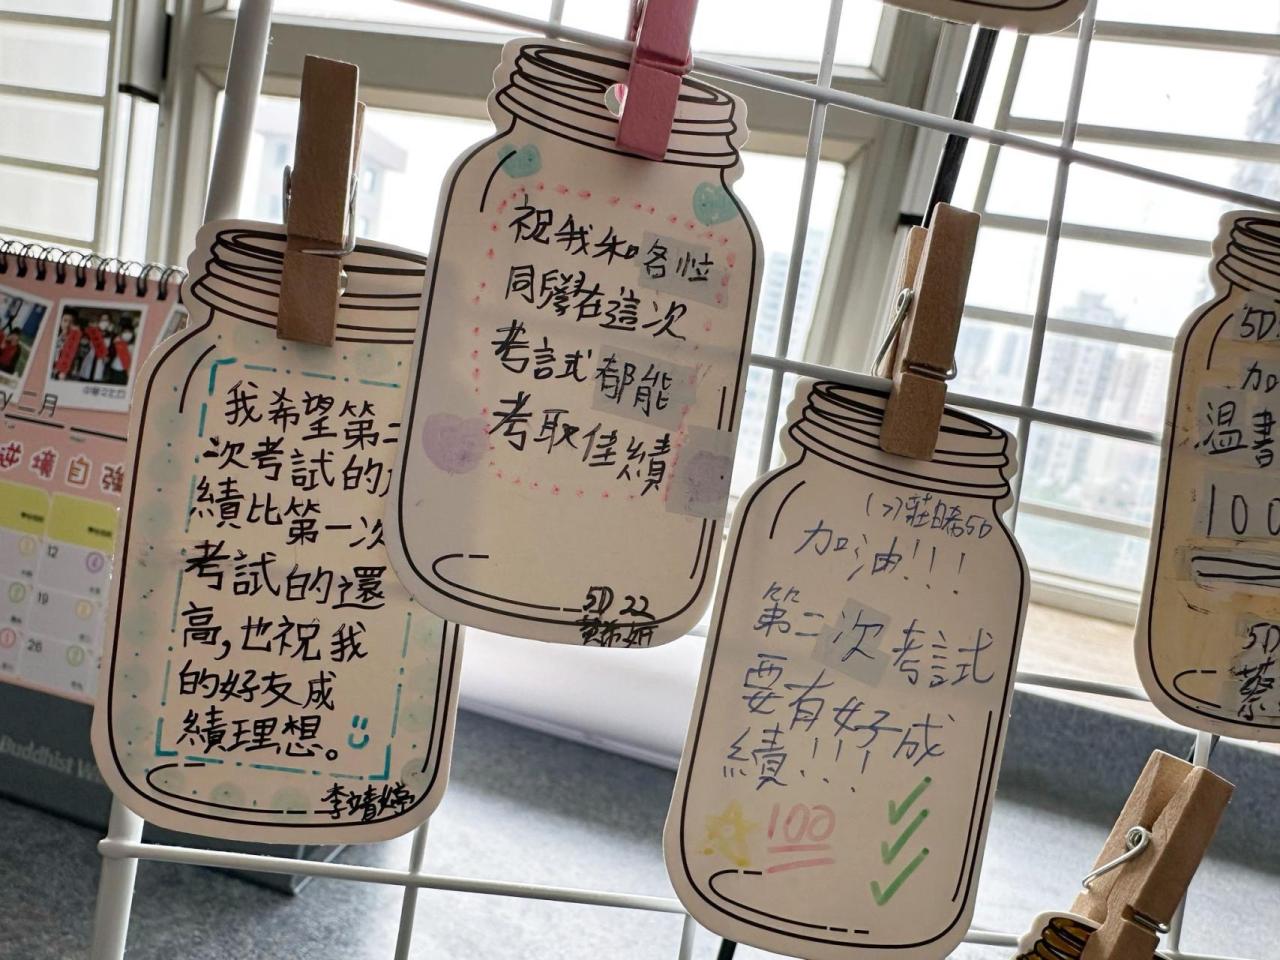 二月
逆境自強
12
19
26
Buddhist W
我希望第二
次考試的
績比第一次
考試的還
高,也祝我
的好友成
績理想。
李靖婷
祝我和各位
同學在這次
考試都能
考取佳績
5D 22
(7)莊日希5D
加油!!!
第二次考試
要有好成
績!!!
100
5D
加
溫書
100
5D
蔡